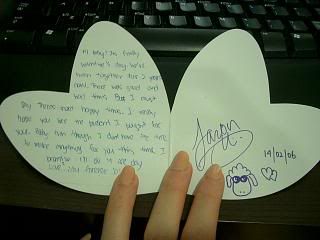 Hi baby! Its finally
valentine's day. We've
been together for 2 year
now. There was good and
bad times. But I must
say theres more happy times. I really
hope you like me present I bought for
you. Baby even though I dont have the time
to make anything for you this time, I
promise I'll do it one day
Love you forever
Jason
14/02/06